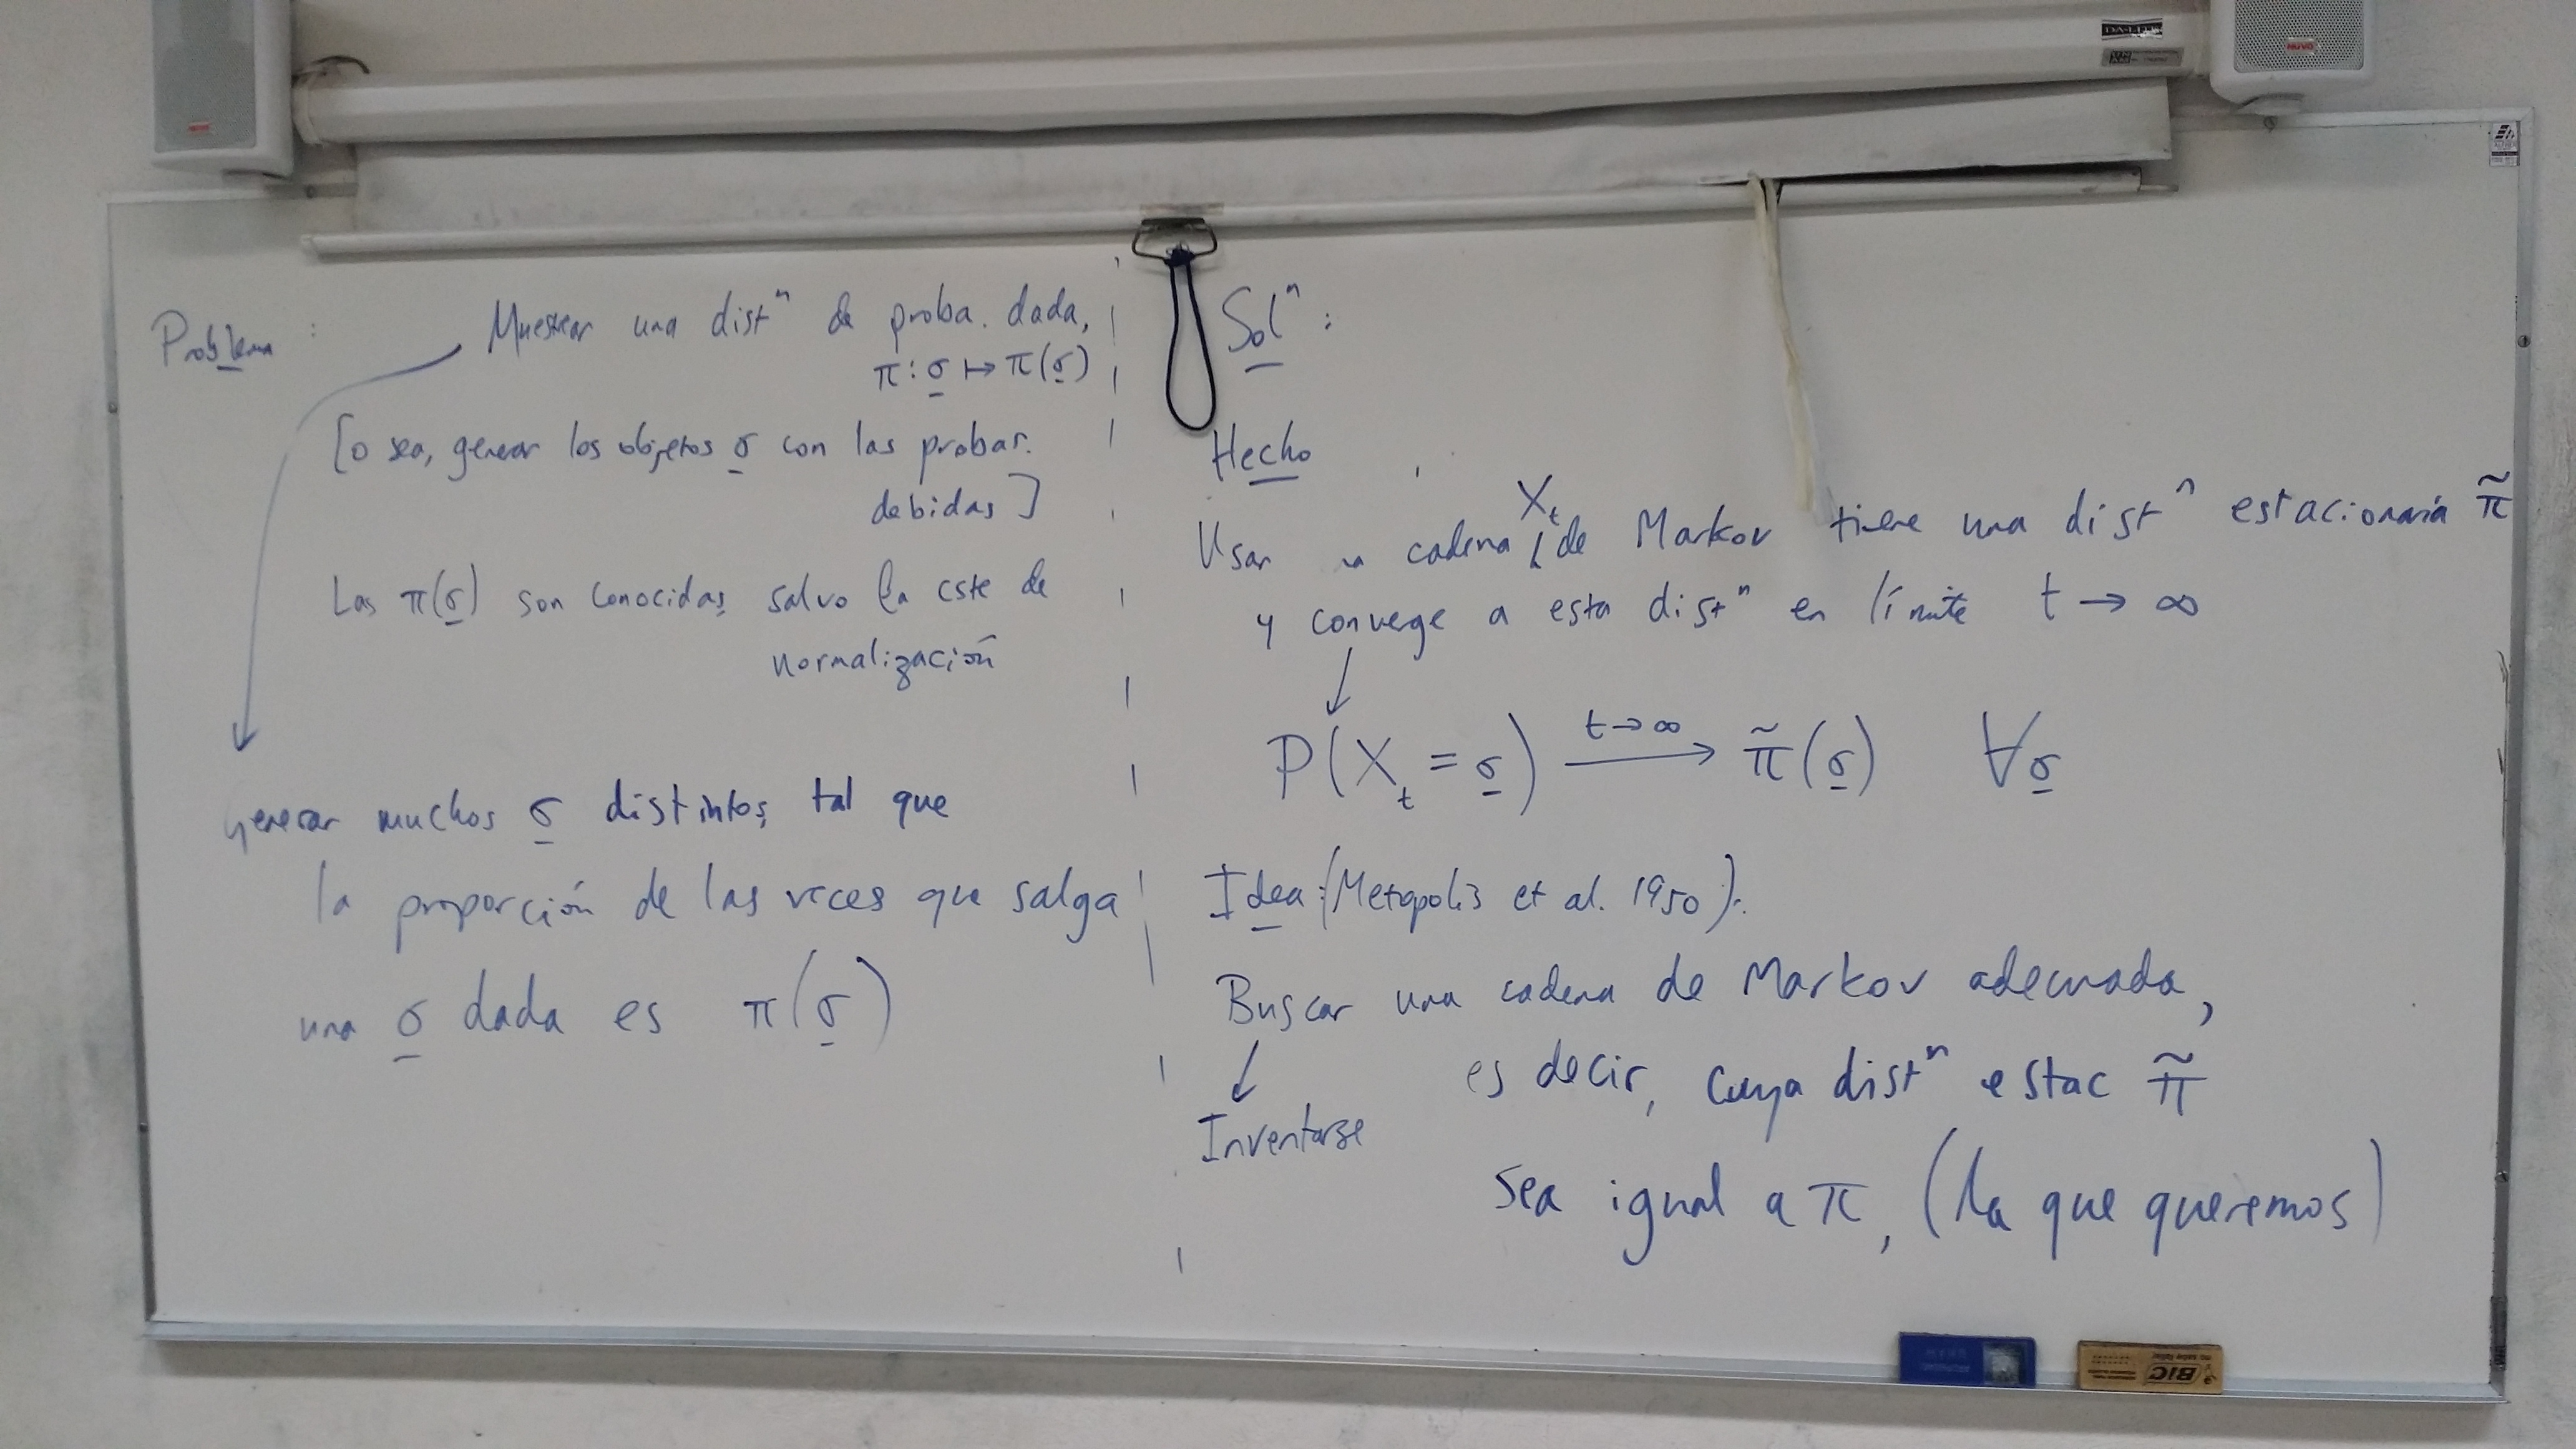 Problema :
Muestrear una distⁿ de proba. dada,
π : σ ↦ π(σ)
[o sea, generar los objetos σ con las probas.
debidas]
Las π(σ) son conocidas, salvo la cste de
normalización
generar muchos σ distintos, tal que
la proporción de las veces que salga
una σ dada es π(σ)
Solⁿ :
Hecho
Usar
cadena X_t de Markov tiene una distⁿ estacionaria π̃
y converge a esta distⁿ en límite t → ∞
P(X_t = σ) —t→∞→ π̃(σ) ∀σ
Idea: (Metropolis et al. 1950):
Buscar una cadena de Markov adecuada,
es decir, cuya distⁿ estac π̃
Inventarse
sea igual a π, (la que queremos)
DA-LITE
BIC